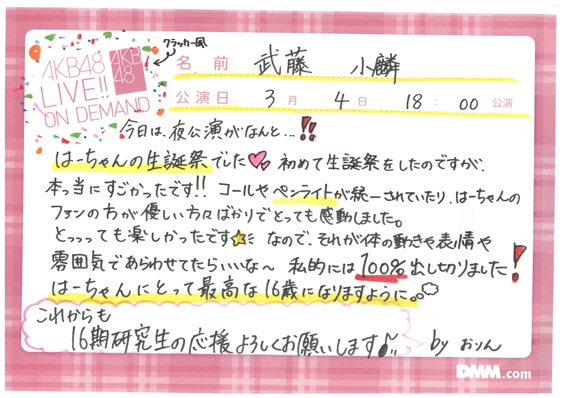 クラッカー風
AKB48
LIVE!!
ON DEMAND
AKB
48
名前 武藤 小麟
公演日 3月 4日 18:00公演
今日は、夜公演がなんと...!!
はーちゃんの生誕祭でした♥ 初めて生誕祭をしたのですが、
本っ当にすごかったです!! コールやペンライトが統一されていたり、はーちゃんの
ファンの方が優しい方々ばかりでとっても感動しました。
とっっっても楽しかったです☆ なので、それが体の動きや表情や
雰囲気であらわせてたらいいな〜 私的には100%出し切りました!
はーちゃんにとって最高な16歳になりますように。
これからも
16期研究生の応援よろしくお願いします♪ by おりん
DMM.com